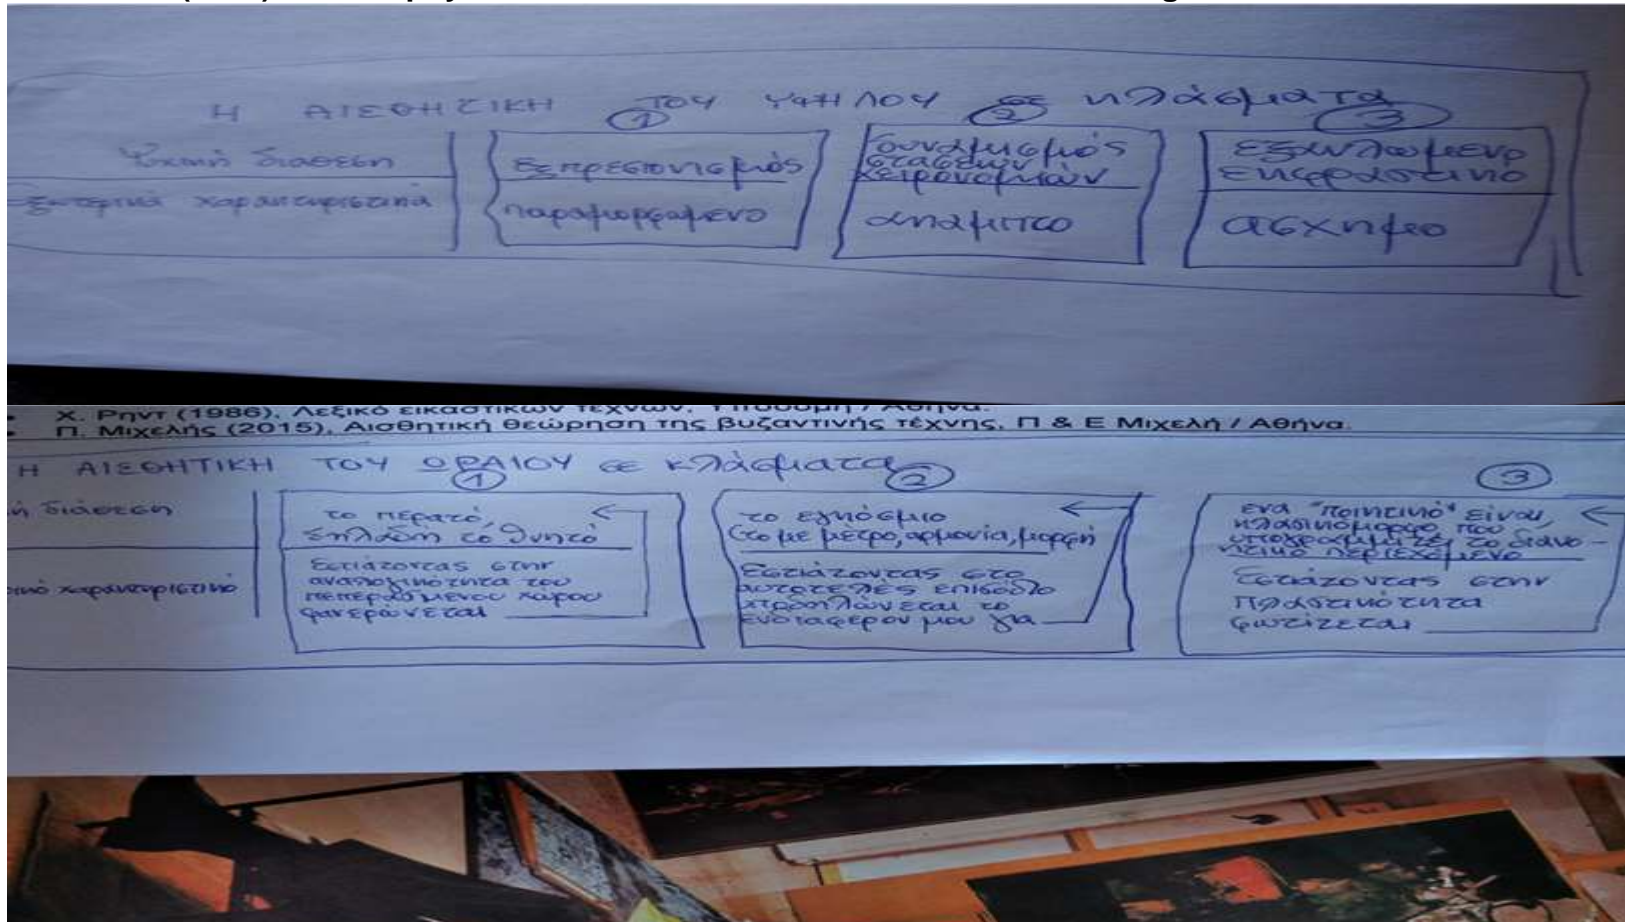 Η ΑΙΣΘΗΤΙΚΗ ΤΟΥ ΥΨΗΛΟΥ σε κλάσματα
① ② ③
Ψυχική διάθεση
εξπρεσιονισμός
δυναμισμός
στάσεων
χειρονομιών
εξαϋλωμενο
εκφραστικο
Εξωτερικά χαρακτηριστικά
παραμορφωμενο
ακαμπτο
ασχημο
Χ. Ρηντ (1986), Λεξικό εικαστικών τεχνών, Υποδομή / Αθήνα.
Π. Μιχελής (2015), Αισθητική θεώρηση της βυζαντινής τέχνης, Π & Ε Μιχελή / Αθήνα.
Η ΑΙΣΘΗΤΙΚΗ ΤΟΥ ΩΡΑΙΟΥ σε κλάσματα
① ② ③
ή διάθεση
το περατό,
δηλαδη το θνητό
το εγκόσμιο
(το με μέτρο, αρμονία, μορφή
ενα "ποιητικό" είναι,
κλασικόμορφο που
υπογραμμίζει το διανο-
ητικό περιεχόμενο
χαρακτηριστικό
Εστιάζοντας στην
αναλογικότητα του
πεπερασμενου χώρου
φανερώνεται
Εστιάζοντας στο
αυτοτελές επισόδιο
το
ενδιαφερον μου για
Εστιάζοντας στην
Πλαστικότητα
φωτίζεται